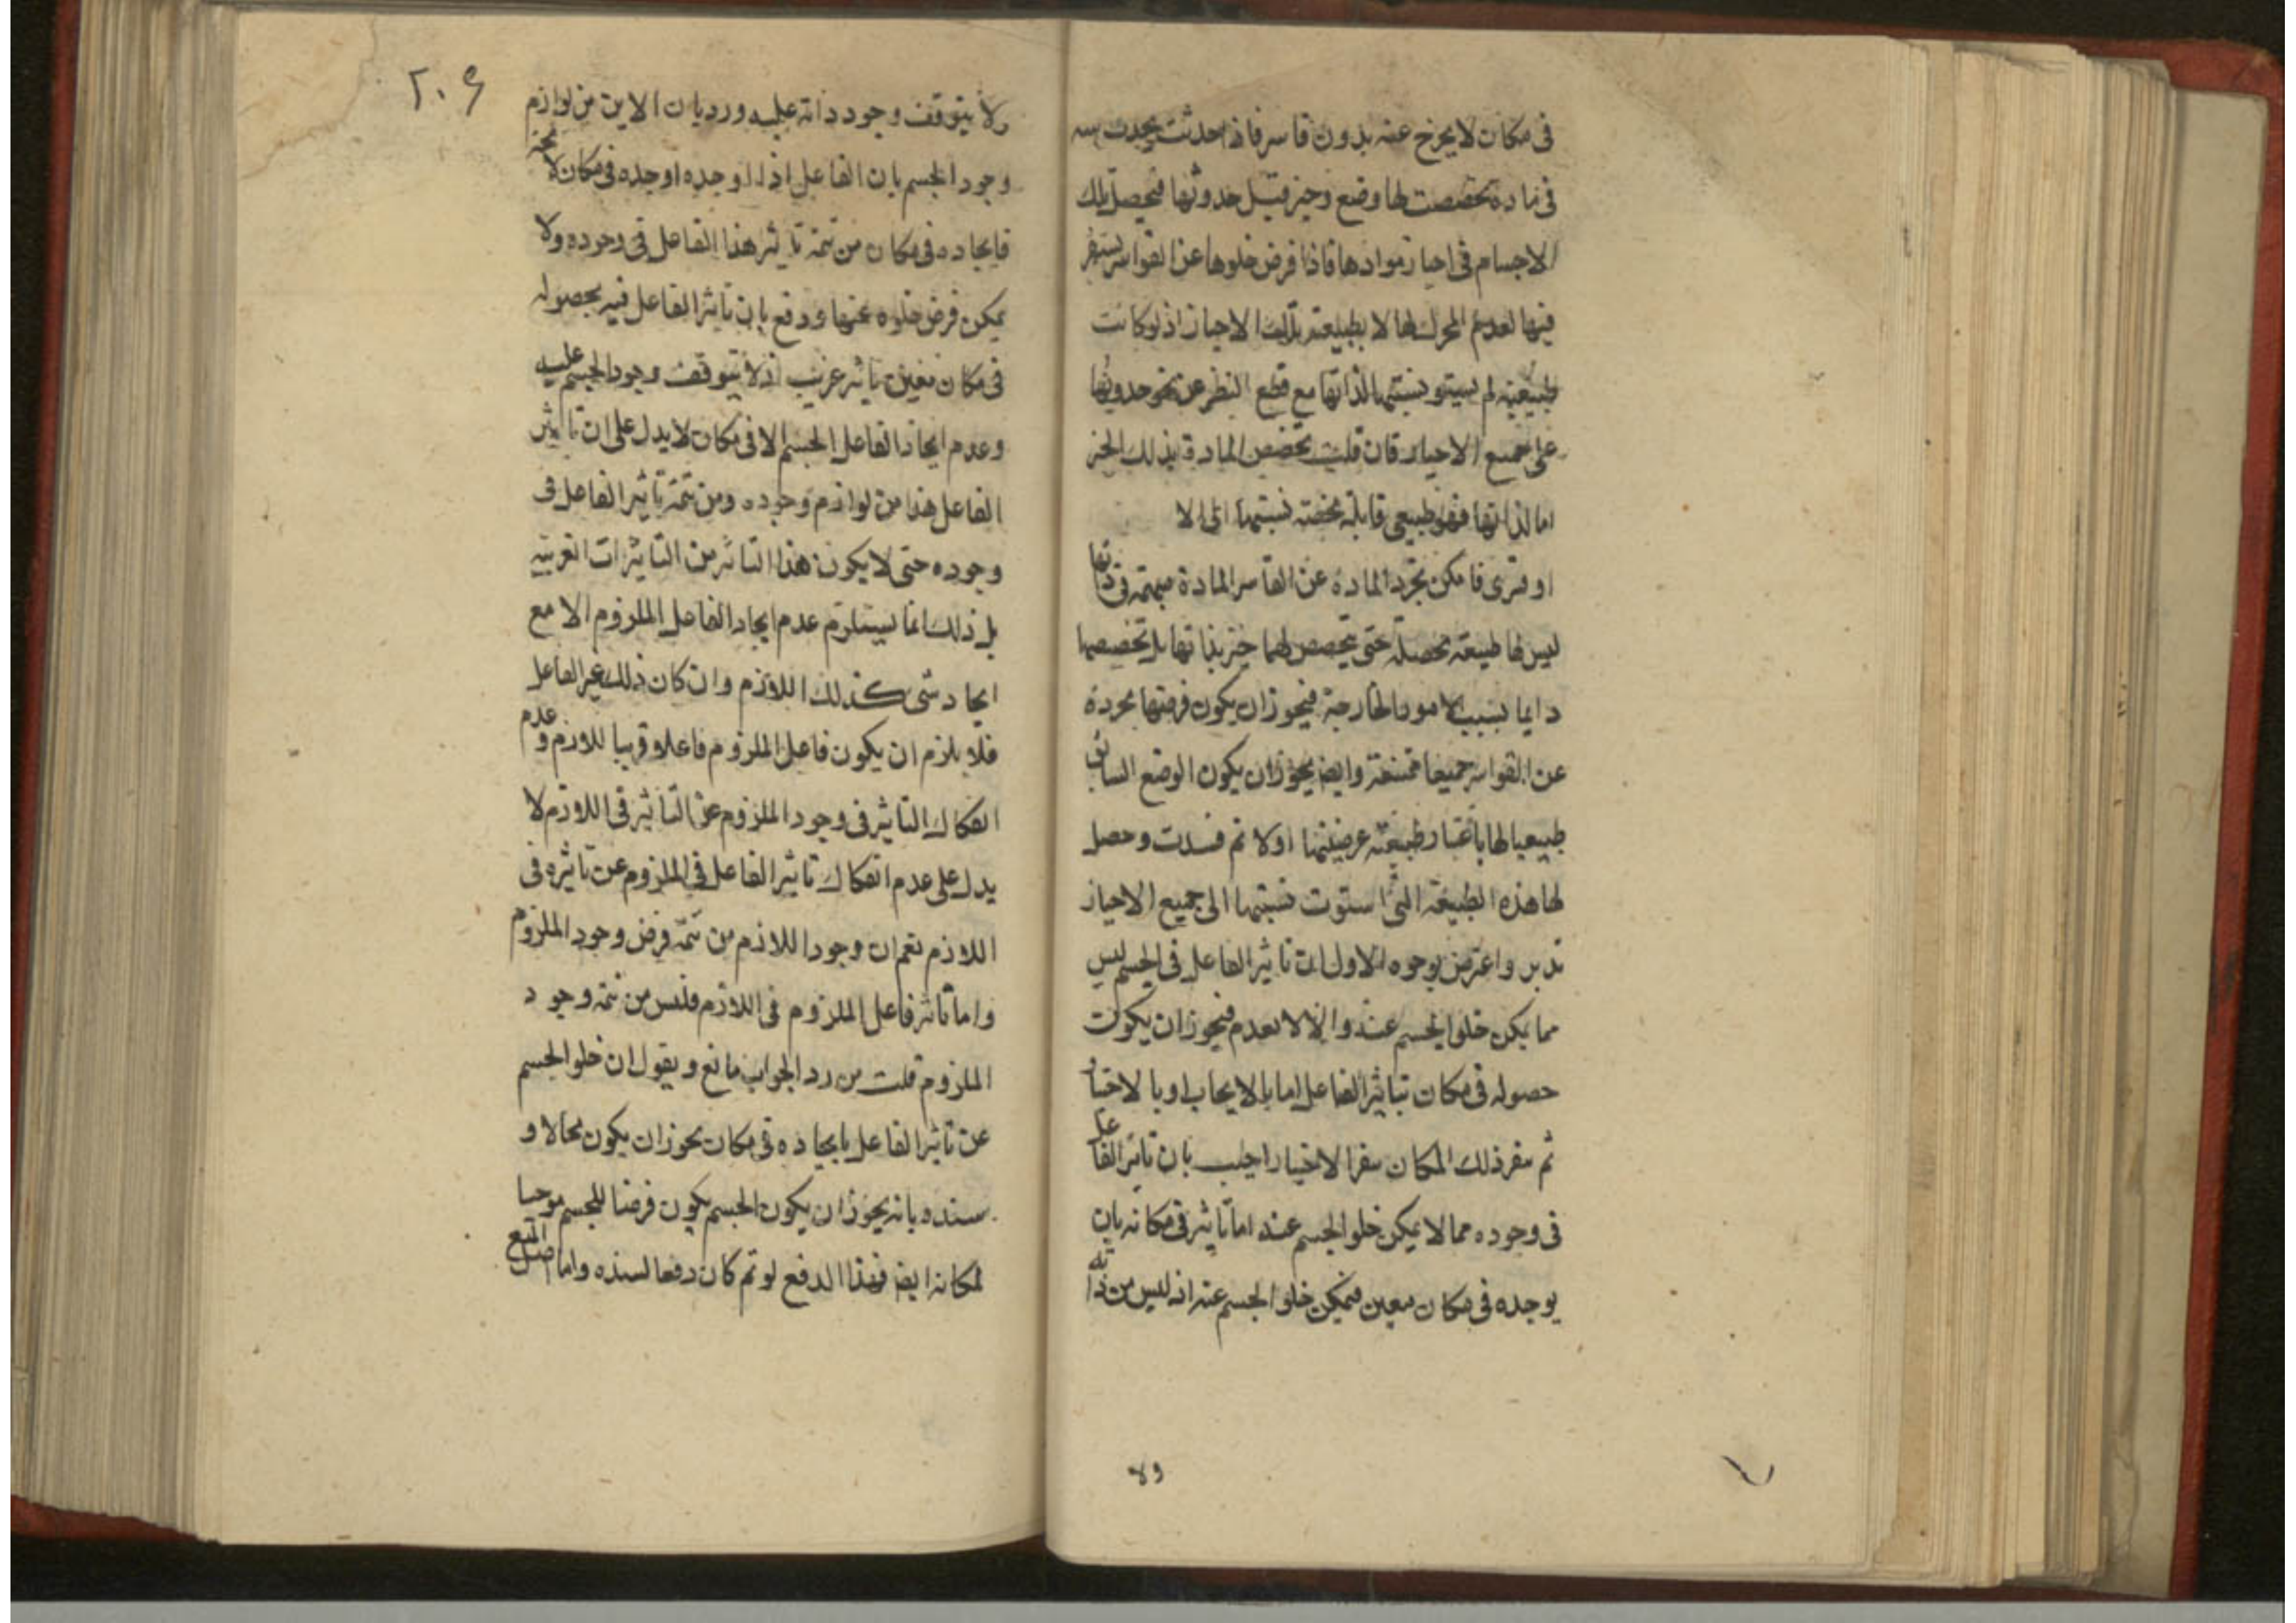 في مكان لا يخرج عنه بدون قاسر فاذا حدثت يحدث
في مادة تخصصت لها وضع وحيز قبل حدوثها فيحصل تلك
الاجسام في احياز موادها فاذا فرض خلوها عن القواسر يستقر
فيها لعدم المحرك لها لا بطبيعته تلك الاحياز اذ لو كانت
طبيعية لم يستو نسبتها لذاتها مع قطع النظر عن نحو حدوثها
على جميع الاحياز فان قلت تخصص المادة بذلك الحيز
اما لذاتها فهو طبيعي نسبتها الى الا
او قسري فامكن تجرد المادة عن القاسر المادة مبهمة في ذاتها
ليس لها طبيعة محصلة حتى يتخصص لها حيز بذاتها بل تخصيصها
دايما بسبب الامور الخارجة فيجوز ان يكون فرضها مجردة
عن القواسر جميعا ممتنعة وايضا يجوز ان يكون الوضع السابق
طبيعيا لها باعتبار طبيعة عرضتها اولا ثم فسدت وحصل
لها هذه الطبيعة التي استوت نسبتها الى جميع الاحياز
تدبر واعترض بوجوه الاول ان تاثير الفاعل في الجسم ليس
مما يمكن خلو الجسم عنه والا لا نعدم فيجوز ان يكون
حصوله في مكان بتاثير الفاعل اما بالايجاب او بالاختيار
ثم الاختيار اجيب بان تاثير الفاعل
في وجوده مما لا يمكن خلو الجسم عنه اما تاثيره في مكانه بان
يوجده في مكان معين فيمكن خلو الجسم عنه اذ ليس من ذاته
ولا
٢٠٩
ولا يتوقف وجود ذاته عليه ورد بان الاين من لوازم
وجود الجسم بان الفاعل اذا اوجده اوجده في مكان لا محة
فايجاده في مكان من تتمة تاثير هذا الفاعل في وجوده ولا
يمكن فرض خلوه عنها ودفع بان تاثير الفاعل فيه بحصوله
في مكان معين تاثير غريب اذ لا يتوقف وجود الجسم عليه
وعدم ايجاد الفاعل الجسم الا في مكان لا يدل على ان تاثير
الفاعل هذا من لوازم وجوده ومن تتمة تاثير الفاعل في
وجوده حتى لا يكون هذا التاثير من التاثيرات الغريبة
بل ذلك انما يستلزم عدم ايجاد الفاعل الملزوم الا مع
ايجاد شى كذلك اللازم وان كان ذلك غير الفاعل
فلا يلزم ان يكون فاعل الملزوم فاعلا قريبا للازم وعدم
انفكاك التاثير في وجود الملزوم عن التاثير في اللازم لا
يدل على عدم انفكاك تاثير الفاعل في الملزوم عن تاثيره في
اللازم نعم ان وجود اللازم من تتمة فرض وجود الملزوم
واما تاثير فاعل الملزوم في اللازم فليس من تتمة وجود
الملزوم قلت من رد الجواب مانع ويقول ان خلو الجسم
عن تاثير الفاعل بايجاده في مكان يجوز ان يكون محالا و
سنده بانه يجوز ان يكون الجسم يكون فرضا للجسم موجبا
لمكانه ايضا فهذا الدفع لو تم كان دفعا لسنده واما اصل المنع